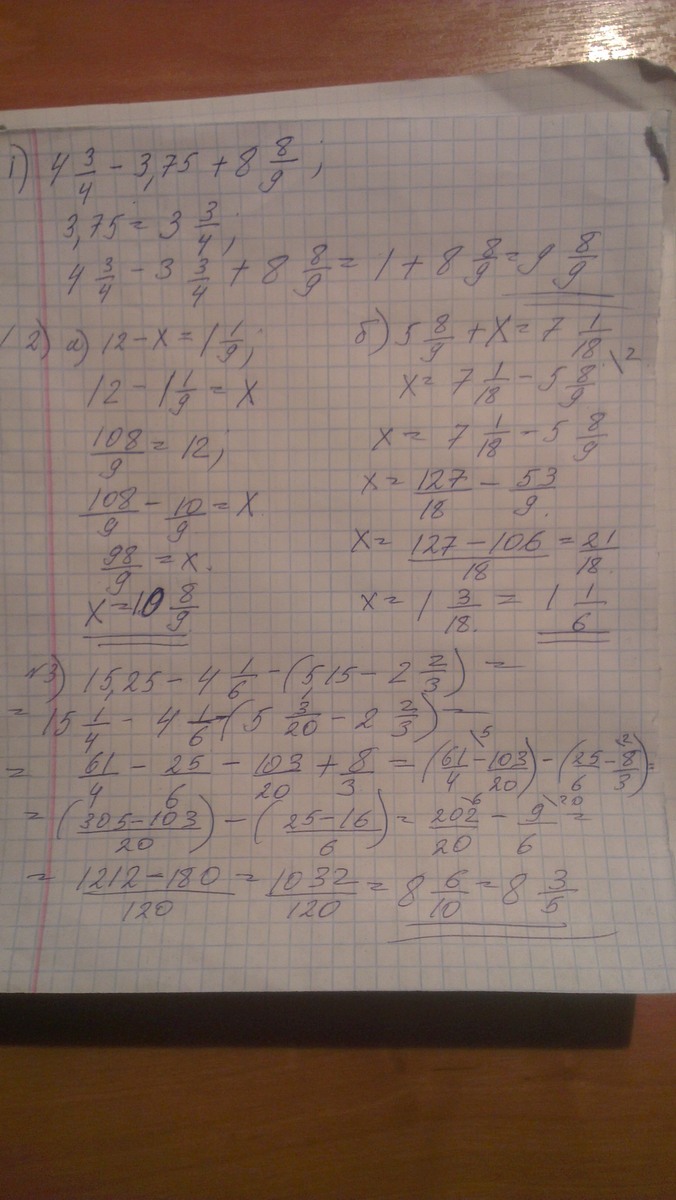 1) 4 3/4 - 3,75 + 8 8/9;
3,75 = 3 3/4;
4 3/4 - 3 3/4 + 8 8/9 = 1 + 8 8/9 = 9 8/9
2) а) 12 - x = 1 1/9;
12 - 1 1/9 = x
108/9 = 12;
108/9 - 10/9 = x
98/9 = x.
x = 10 8/9
б) 5 8/9 + x = 7 1/18
x = 7 1/18 - 5 8/9 \2
x = 7 1/18 - 5 8/9
x = 127/18 - 53/9.
x = 127 - 106/18 = 21/18.
x = 1 3/18. = 1 1/6
№3) 15,25 - 4 1/6 - (5,15 - 2 2/3) =
= 15 1/4 - 4 1/6 - (5 3/20 - 2 2/3) =
= 61/4 - 25/6 - 103/20 + 8/3 = (61/4 \5 - 103/20) - (25/6 - 8/3 \2) =
= (305 - 103/20) - (25 - 16/6) = 202/20 \6 - 9/6 \20 =
= 1212 - 180/120 = 1032/120 = 8 6/10 = 8 3/5